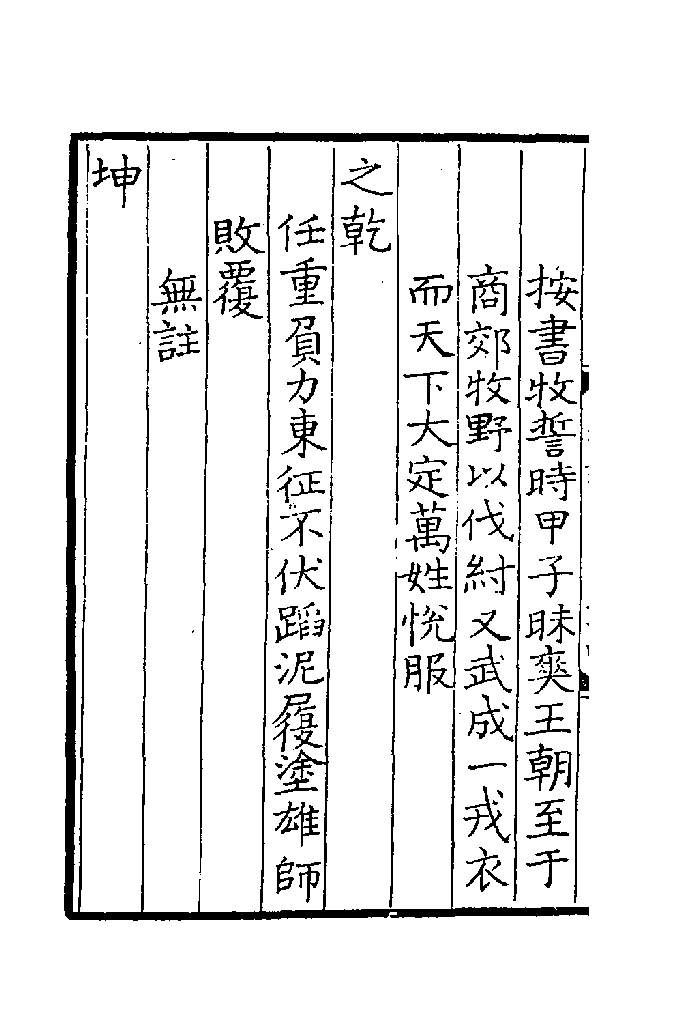 按書牧誓時甲子昧爽王朝至于
商郊牧野以伐紂又武成一戎衣
而天下大定萬姓悅服
之乾
任重負力東征不伏蹈泥履塗雄師
敗覆
無註
坤